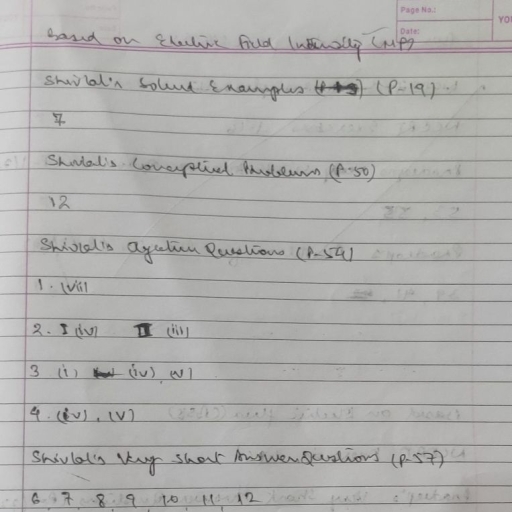 Page No.:
Date:
YOU
Based on Electric Field Intensity (NP)
Shivlal's Solved Examples (P-19)
7
Shivlal's Conceptual Problems (P-50)
12
Shivlal's Questions (P-54)
1. (vii)
2. I (iv) II (iii)
3 (i) (iv) (v)
4. (iv), (v)
Shivlal's Very Short Answer Questions (P-57)
6 7 8 9 10 11 12